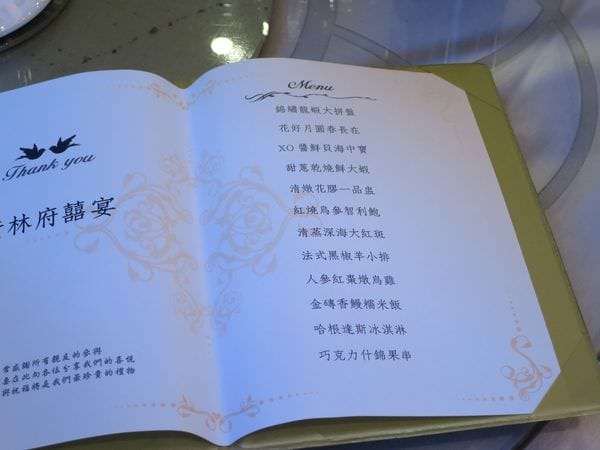 Thank you
林府囍宴
常感謝所有親友的參與
要在此向各位分享我們的喜悅
與祝福將是我們最珍貴的禮物
Menu
錦繡龍蝦大拼盤
花好月圓春長在
XO 醬鮮貝海中寶
甜蔥乾燒鮮大蝦
清燉花膠一品盅
紅燒烏參智利鮑
清蒸深海大紅斑
法式黑椒羊小排
人參紅棗燉烏雞
金磚香鰻糯米飯
哈根達斯冰淇淋
巧克力什錦果串